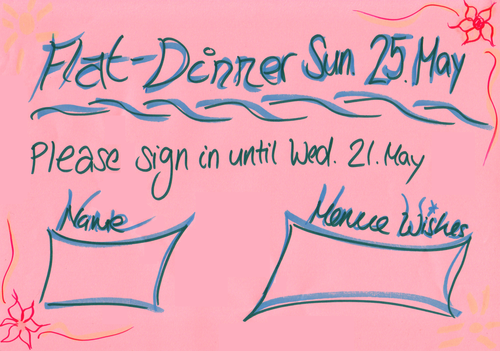 Flat-Dinner Sun 25. May
Please sign in until Wed. 21. May
Name
Menue Wishes